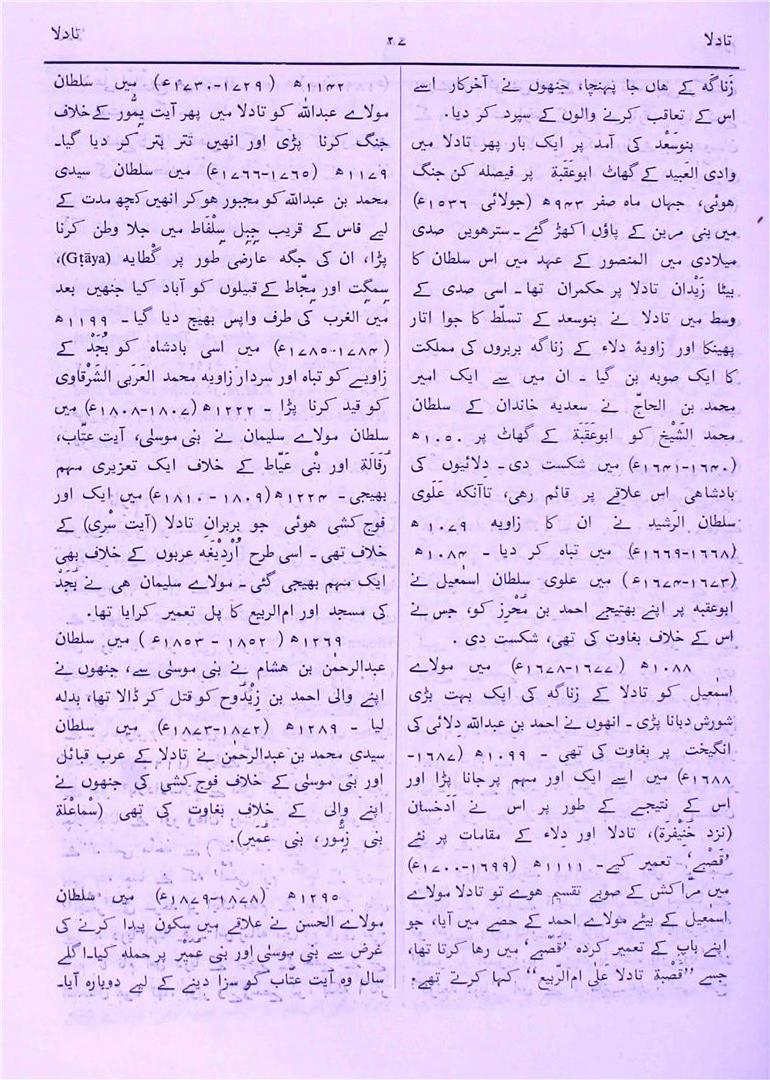 تادلا
۲۰۷
تادلا
زَناگه کے ھاں جا پہنچا، جنھوں نے آخرکار اسے
اس کے تعاقب کرنے والوں کے سپرد کر دیا.
بنوسَعْد کی آمد پر ایک بار پھر تادلا میں
وادی العَبید کے گھاٹ ابوعَقَبة پر فیصلہ کن جنگ
ھوئی، جہاں ماہ صفر ۹۴۳ھ (جولائی ۱۵۳۶ء)
میں بنی مرین کے پاؤں اکھڑ گئے۔ سترھویں صدی
میلادی میں المنصور کے عہد میں اس سلطان کا
بیٹا زَیْدان تادلا پر حکمران تھا۔ اسی صدی کے
وسط میں تادلا نے بنوسعد کے تسلّط کا جوا اتار
پھینکا اور زاویۂ دلاء کے زناگه بربروں کی مملکت
کا ایک صوبہ بن گیا۔ ان میں سے ایک امیر
محمد بن الحاجّ نے سعدیہ خاندان کے سلطان
محمد الشَّیْخ کو ابوعَقَبَة کے گھاٹ پر ۱۰۵۰ھ
(۱۶۴۰-۱۶۴۱ء) میں شکست دی۔ دِلائیوں کی
بادشاھی اس علاقے پر قائم رھی، تاآنکہ عَلَوی
سلطان الرشید نے ان کا زاویہ ۱۰۷۹ھ
(۱۶۶۸-۱۶۶۹ء) میں تباہ کر دیا۔ ۱۰۸۴ھ
(۱۶۷۳-۱۶۷۴ء) میں علوی سلطان اسمٰعیل نے
ابوعقبه پر اپنے بھتیجے احمد بن مُحْرِز کو، جس نے
اس کے خلاف بغاوت کی تھی، شکست دی.
۱۰۸۸ھ (۱۶۷۷-۱۶۷۸ء) میں مولاے
اسمٰعیل کو تادلا کے زناگه کی ایک بہت بڑی
شورش دبانا پڑی۔ انھوں نے احمد بن عبداللہ دِلائی کی
انگیخت پر بغاوت کی تھی۔ ۱۰۹۹ھ (۱۶۸۷-
۱۶۸۸ء) میں اسے ایک اور مہم پر جانا پڑا اور
اس کے نتیجے کے طور پر اس نے آدخسان
(نزد خَنیفَرة)، تادلا اور دِلاء کے مقامات پر نئے
’قَصْبے‘ تعمیر کیے۔ ۱۱۱۱ھ (۱۶۹۹-۱۷۰۰ء)
میں مرّاکش کے صوبے تقسیم ھوے تو تادلا مولاے
اسمٰعیل کے بیٹے مولاے احمد کے حصے میں آیا، جو
اپنے باپ کے تعمیر کردہ ’قَصْبے‘ میں رھا کرتا تھا،
جسے ’’قَصْبة تادلا عَلٰی ام الربیع‘‘ کہا کرتے تھے.
۱۱۴۲ھ (۱۷۲۹-۱۷۳۰ء) میں سلطان
مولاے عبداللہ کو تادلا میں پھر آیت یمّور کے خلاف
جنگ کرنا پڑی اور انھیں تتر بتر کر دیا گیا۔
۱۱۷۹ھ (۱۷۶۵-۱۷۶۶ء) میں سلطان سیدی
محمد بن عبداللہ کو مجبور ھو کر انھیں کچھ مدت کے
لیے فاس کے قریب جبل سِلْفاط میں جلا وطن کرنا
پڑا، ان کی جگہ عارضی طور پر گُطایه (Gṭāya)،
سِمگِت اور مِجّاط کے قبیلوں کو آباد کیا جنھیں بعد
میں الغرب کی طرف واپس بھیج دیا گیا۔ ۱۱۹۹ھ
(۱۷۸۴-۱۷۸۵ء) میں اسی بادشاہ کو بُجَدْ کے
زاویے کو تباہ اور سردار زاویه محمد العَرَبی الشَّرْقاوی
کو قید کرنا پڑا۔ ۱۲۲۲ھ (۱۸۰۷-۱۸۰۸ء) میں
سلطان مولاے سلیمان نے بنی موسٰی، آیت عتّاب،
رُفالَة اور بنی عَیّاط کے خلاف ایک تعزیری مہم
بھیجی۔ ۱۲۲۴ھ (۱۸۰۹-۱۸۱۰ء) میں ایک اور
فوج کشی ھوئی جو بربرانِ تادلا (آیت سْری) کے
خلاف تھی۔ اسی طرح اُرْدِیغه عربوں کے خلاف بھی
ایک مہم بھیجی گئی۔ مولاے سلیمان ھی نے بُجَدْ
کی مسجد اور ام الربیع کا پل تعمیر کرایا تھا.
۱۲۶۹ھ (۱۸۵۲-۱۸۵۳ء) میں سلطان
عبدالرحمٰن بن ھشام نے بنی موسٰی سے، جنھوں نے
اپنے والی احمد بن زَیْدوح کو قتل کر ڈالا تھا، بدلہ
لیا۔ ۱۲۸۹ھ (۱۸۷۲-۱۸۷۳ء) میں سلطان
سیدی محمد بن عبدالرحمٰن نے تادلا کے عرب قبائل
اور بنی موسٰی کے خلاف فوج کشی کی جنھوں نے
اپنے والی کے خلاف بغاوت کی تھی (سْماعْلَة
بنی زَمُّور، بنی عُمَیر).
۱۲۹۵ھ (۱۸۷۸-۱۸۷۹ء) میں سلطان
مولاے الحسن نے علاقے میں سکون پیدا کرنے کی
غرض سے بنی موسٰی اور بنی عُمَیْر پر حملہ کیا۔ اگلے
سال وہ آیت عتّاب کو سزا دینے کے لیے دوبارہ آیا۔